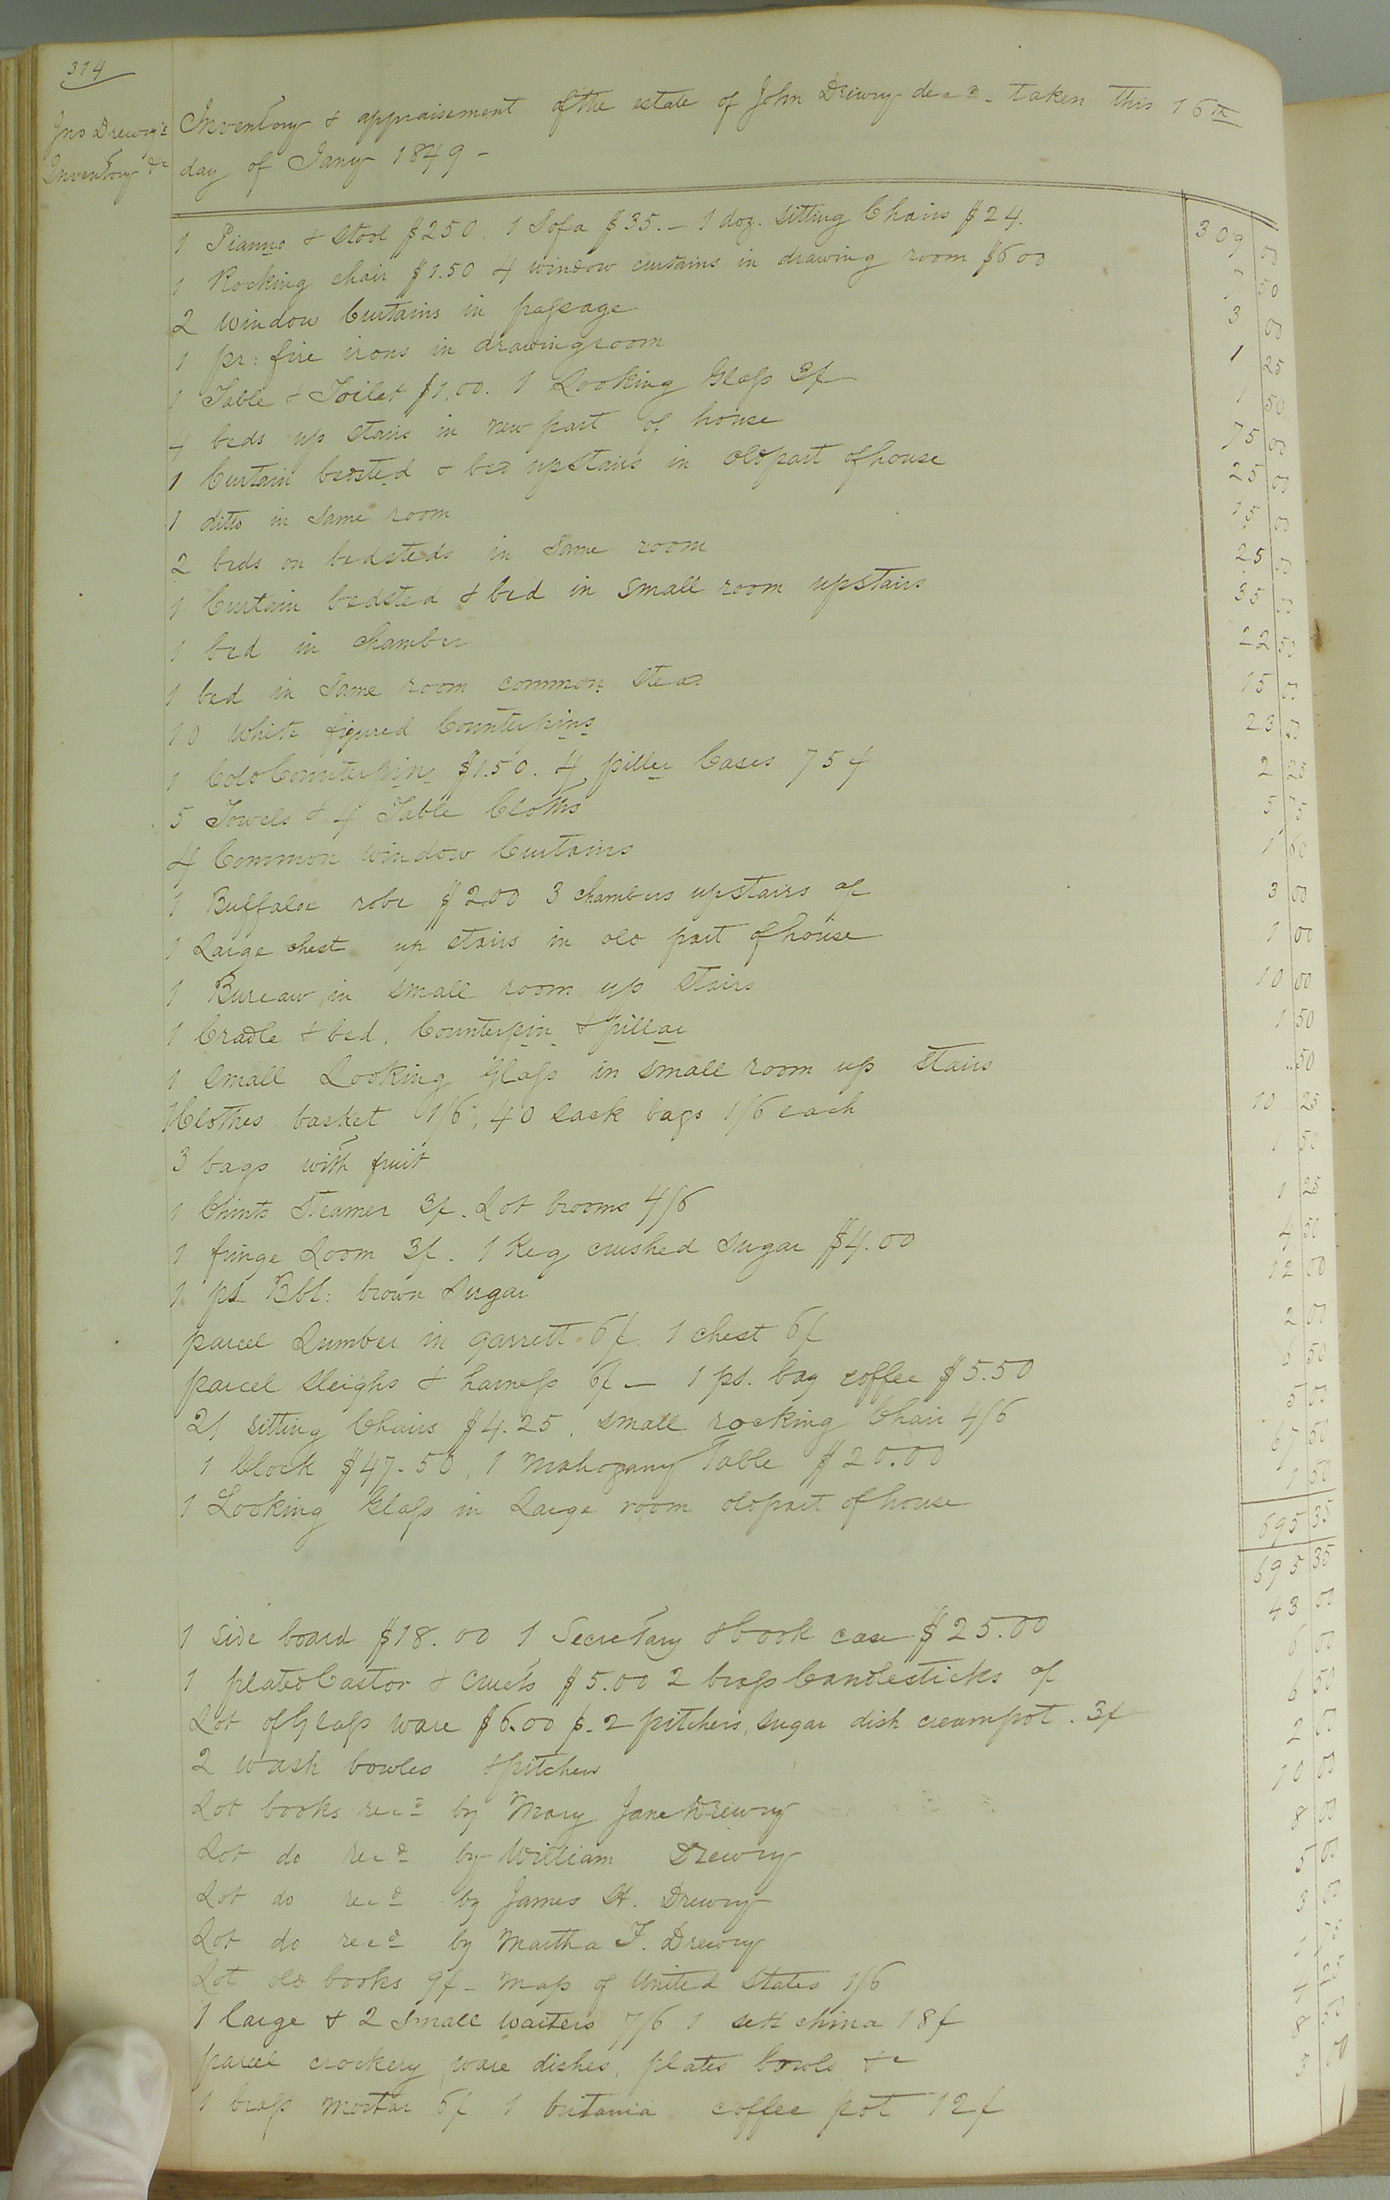 314
Jno Drewry's
Inventory &c
Inventory & appraisement of the estate of John Drewry decd. taken this 16th
day of Jany 1849 -
1 Pianno & Stool $250. 1 Sofa $35. - 1 doz. Sitting Chairs $24. 309 00
1 Rocking chair $1.50 4 window curtains in drawing room $6 00 7 50
2 Window Curtains in passage 3 00
1 pr: fire irons in drawingroom 1 25
1 Table & Toilet $1.00. 1 Looking Glass 3/ 1 50
4 beds up stairs in new part of house 75 00
1 Curtain bedsted & bed upstairs in old part of house 25 00
1 ditto in same room 15 00
2 beds on bedsteds in same room 25 00
1 Curtain bedsted & bed in small room upstairs 35 00
1 bed in chamber 22 50
1 bed in same room common stead 15 00
10 white figured Counterpins 23 50
1 Cold Counterpin $1.50. 4 piller Cases 75 ¢ 2 25
5 Towels & 4 Table Cloths 5 75
4 Common window Curtains 1 60
1 Buffaloe robe $2.00 3 chambers upstairs 6/ 3 00
1 Large chest up stairs in old part of house 1 00
1 Bureaw in small room up stairs 10 00
1 Cradle & bed, Counterpin & pillar 1 50
1 small Looking Glass in small room up stairs .. 50
1 Clothes basket 1/6, 40 sack bags 1/6 each 10 25
3 bags with fruit 1 50
1 Steamer 3/. Lot brooms 4/6 1 25
1 fringe Loom 3/. 1 Keg crushed sugar $4.00 4 50
1 ps Bbl: brown sugar 12 00
parcel Lumber in garrett 6/ 1 chest 6/ 2 00
parcel sleighs & harness 6/ - 1 ps. bag coffee $5.50 6 50
21 sitting Chairs $4.25, small rocking Chair 4/6 5 00
1 Clock $47.50, 1 Mahogany Table $20.00 67 50
1 Looking Glass in Large room old part of house 1 50
695 35
695 35
1 side board $18.00 1 Secretary & book case $25.00 43 00
1 plated Castor & Cruets $5.00 2 brass Candlesticks 6/ 6 00
Lot of Glass ware $6.00 p. 2 pitchers, sugar dish creampot. 3/ 6 50
2 wash bowles & pitchers 2 00
Lot books recd by Mary Jane Drewry 10 00
Lot do recd by William Drewry 8 00
Lot do recd by James H. Drewry 5 00
Lot do recd by Martha F. Drewry 3 00
Lot old books 9/ - Map of United States 1/6 1 75
1 large & 2 small waiters 7/6 1 sett china 18/ 4 25
parcel crockery ware dishes, plates bowls &c 8 50
1 brass mortar 6/ 1 britania coffee pot 12/ 3 00